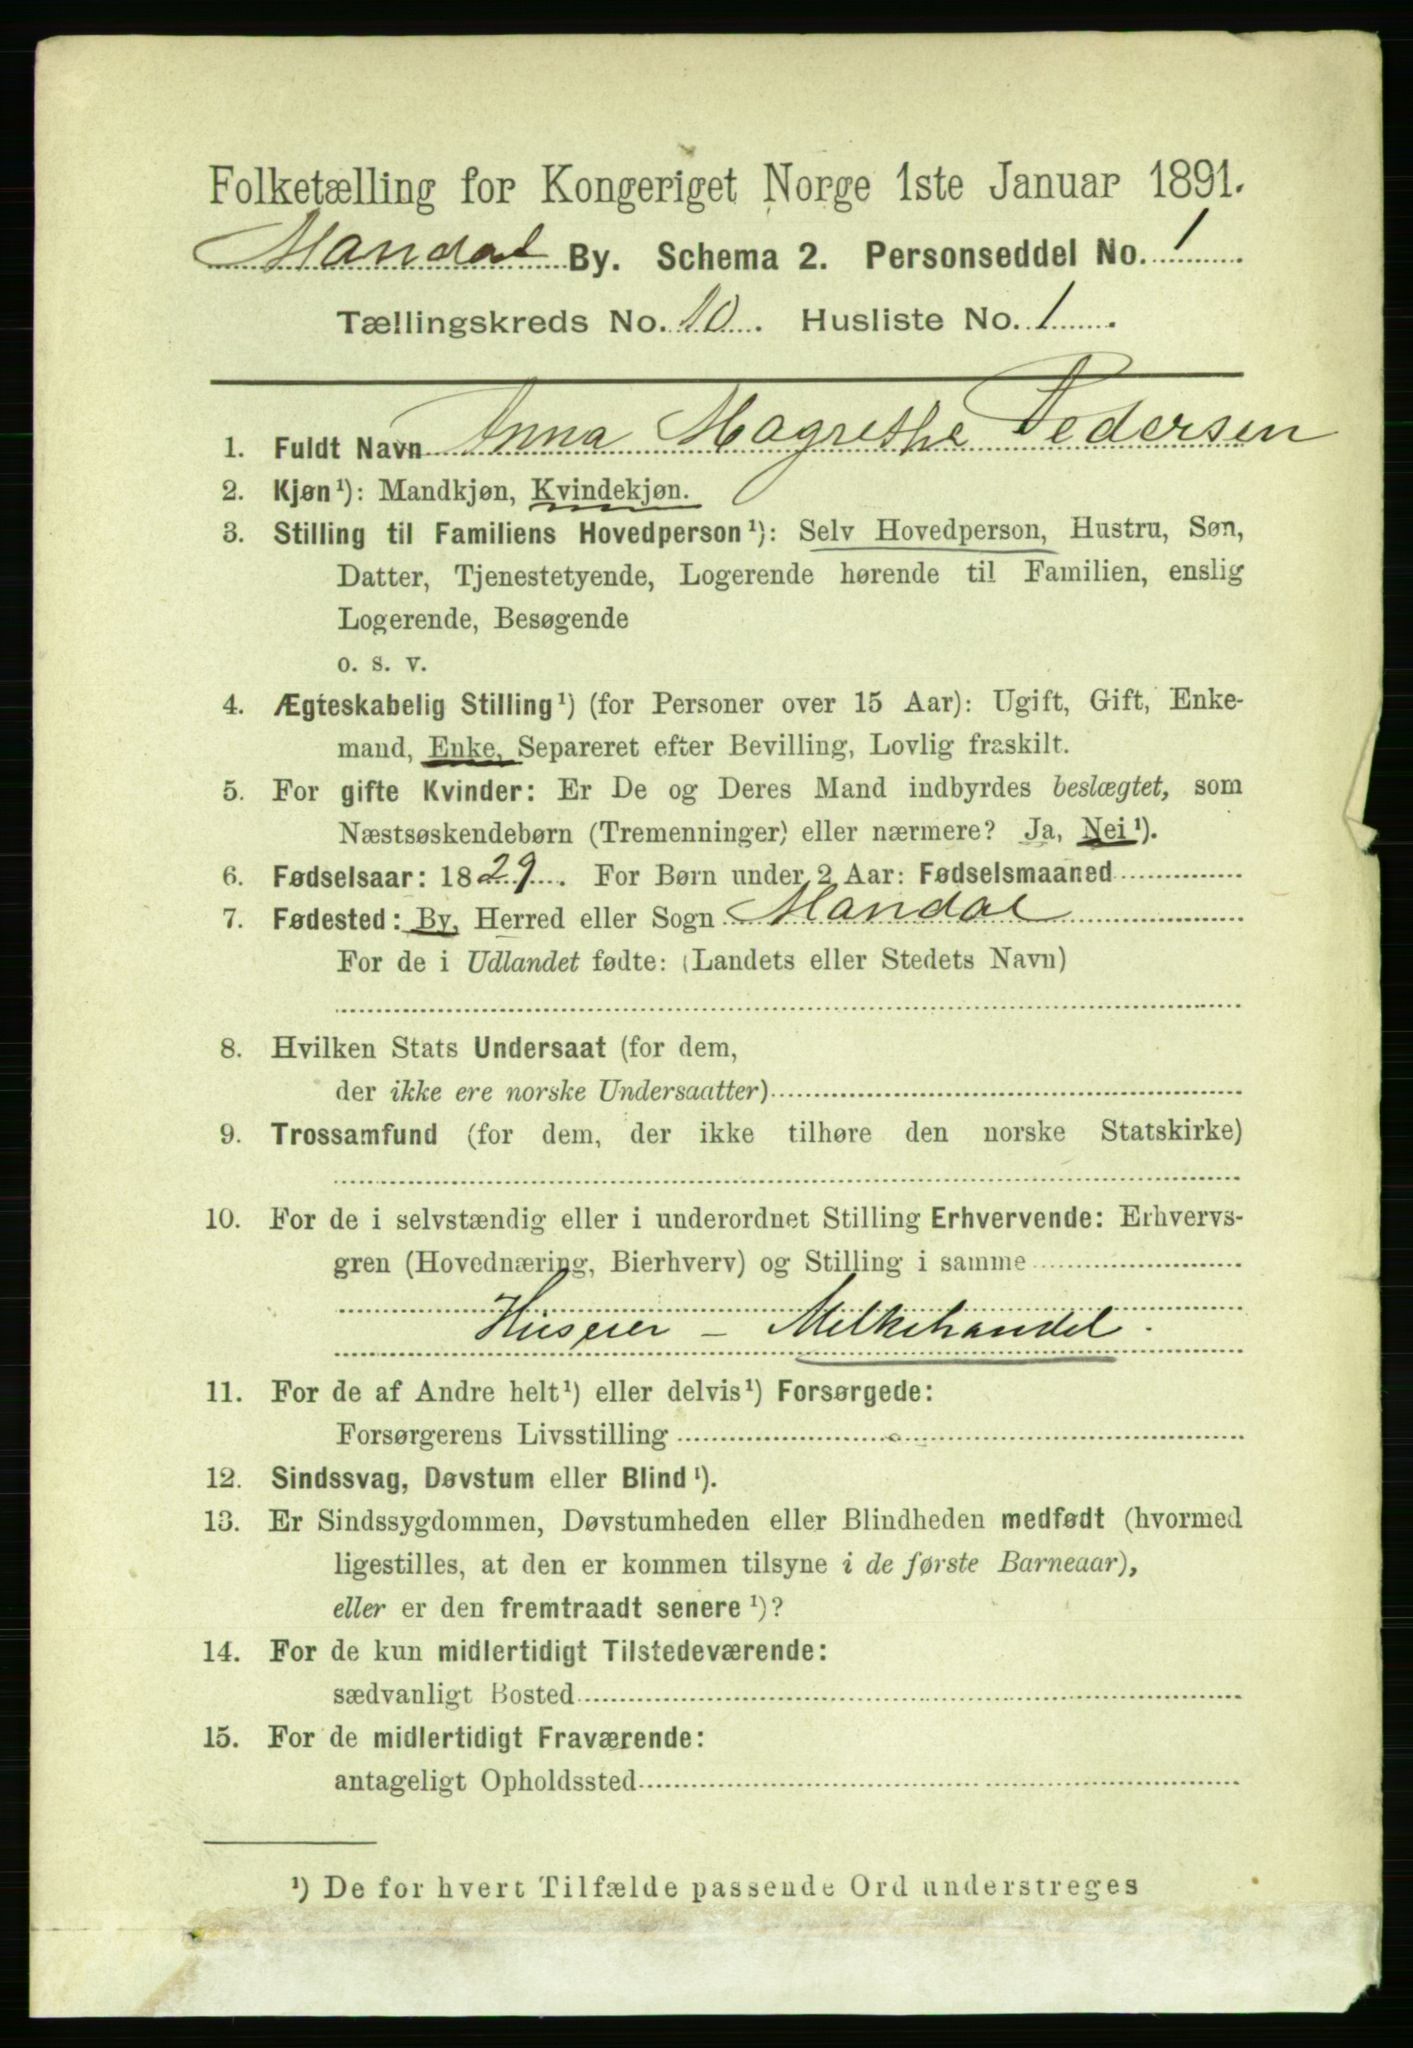 Folketælling for Kongeriget Norge 1ste Januar 1891.
Mandal By. Schema 2. Personseddel No. 1
Tællingskreds No. 10. Husliste No. 1.
1. Fuldt Navn Anna Magrethe Pedersen
2. Kjøn¹): Mandkjøn, Kvindekjøn.
3. Stilling til Familiens Hovedperson¹): Selv Hovedperson, Hustru, Søn,
Datter, Tjenestetyende, Logerende hørende til Familien, enslig
Logerende, Besøgende
o. s. v.
4. Ægteskabelig Stilling¹) (for Personer over 15 Aar): Ugift, Gift, Enke-
mand, Enke, Separeret efter Bevilling, Lovlig fraskilt.
5. For gifte Kvinder: Er De og Deres Mand indbyrdes beslægtet, som
Næstsøskendebørn (Tremenninger) eller nærmere? Ja, Nei¹).
6. Fødselsaar: 1829. For Børn under 2 Aar: Fødselsmaaned
7. Fødested: By, Herred eller Sogn Mandal
For de i Udlandet fødte: (Landets eller Stedets Navn)
8. Hvilken Stats Undersaat (for dem,
der ikke ere norske Undersaatter)
9. Trossamfund (for dem, der ikke tilhøre den norske Statskirke)
10. For de i selvstændig eller i underordnet Stilling Erhvervende: Erhvervs-
gren (Hovednæring, Bierhverv) og Stilling i samme
Huseier - Melkehandel.
11. For de af Andre helt¹) eller delvis¹) Forsørgede:
Forsørgerens Livsstilling
12. Sindssvag, Døvstum eller Blind¹).
13. Er Sindssygdommen, Døvstumheden eller Blindheden medfødt (hvormed
ligestilles, at den er kommen tilsyne i de første Barneaar),
eller er den fremtraadt senere¹)?
14. For de kun midlertidigt Tilstedeværende:
sædvanligt Bosted
15. For de midlertidigt Fraværende:
antageligt Opholdssted
¹) De for hvert Tilfælde passende Ord understreges